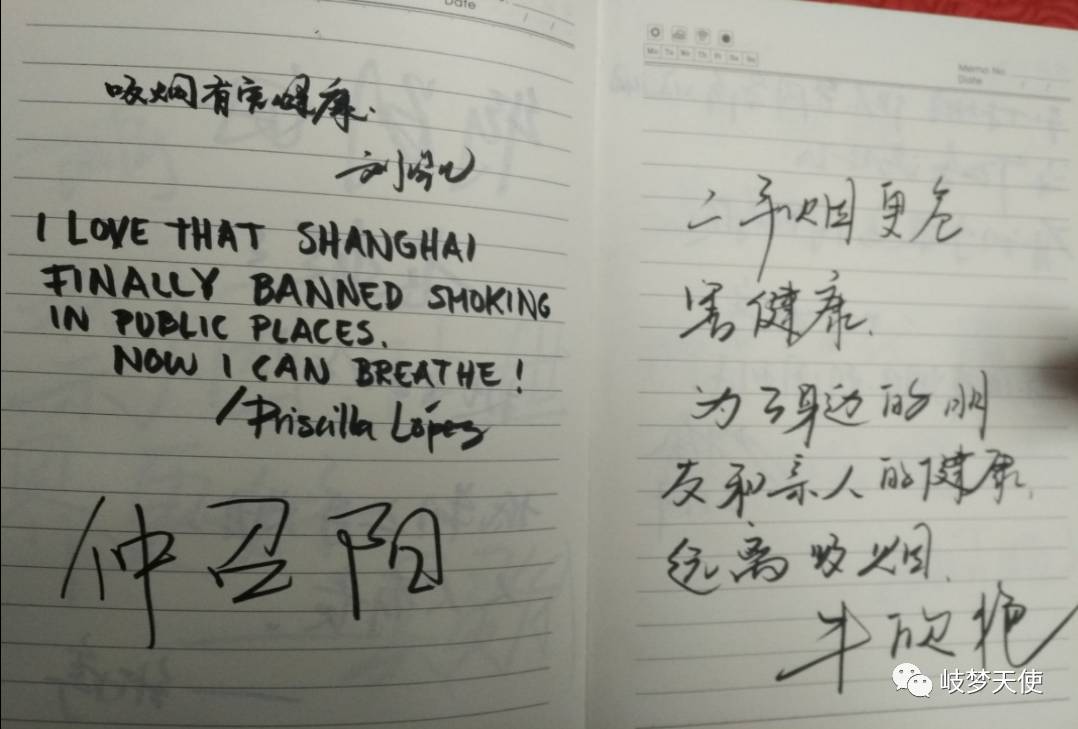 Date
吸烟有害健康.
I LOVE THAT SHANGHAI
FINALLY BANNED SMOKING
IN PUBLIC PLACES.
NOW I CAN BREATHE!
/Priscilla López
仲召阳
Mo Tu We Th Fr Sa Su
Memo No.
Date
二手烟更危
害健康.
为了身边的朋
友和亲人的健康,
远离吸烟.
牛欣艳
岐梦天使